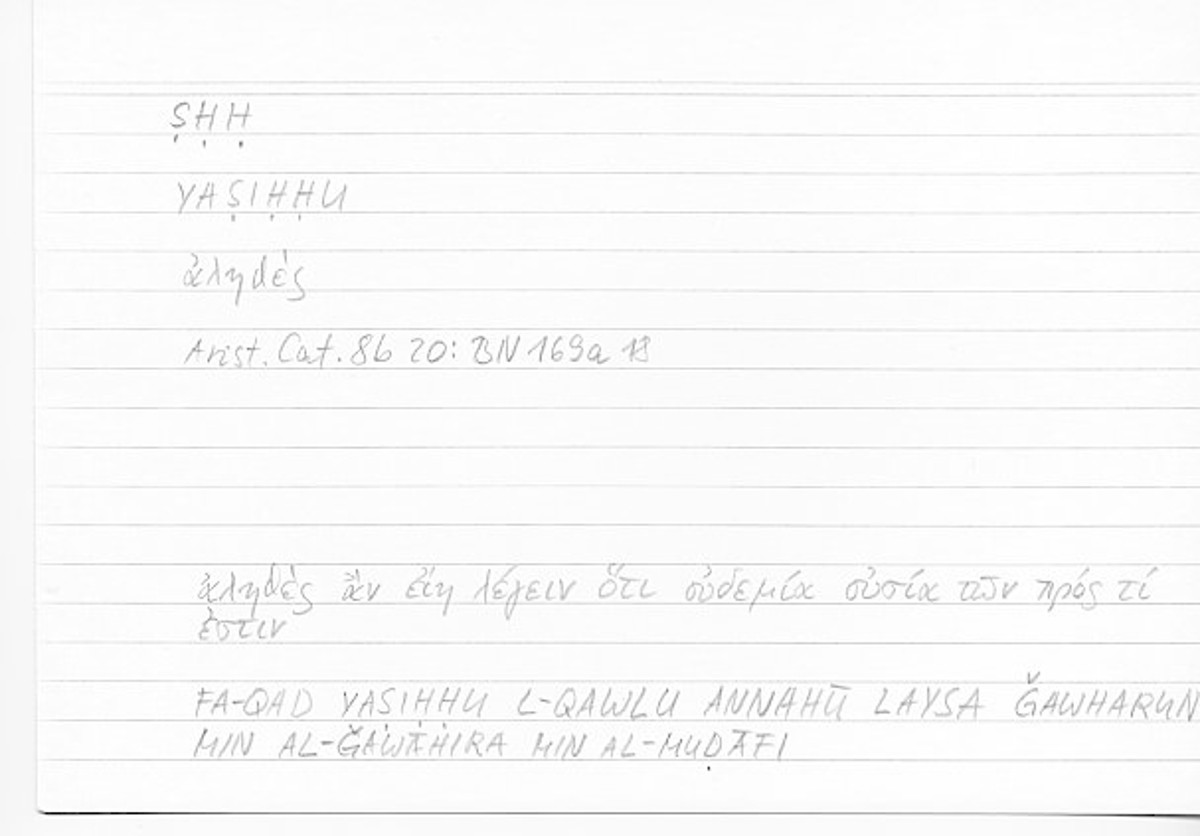 ṢḤḤ
YAṢIḤḤU
ἀληθὲς
Arist. Cat. 8b 20: BN 169a 18
ἀληθὲς ἂν εἴη λέγειν ὅτι οὐδεμία οὐσία τῶν πρός τί
ἐστιν
FA-QAD YAṢIḤḤU L-QAWLU ANNAHŪ LAYSA ǦAWHARUN
MIN AL-ǦAWĀHIRA MIN AL-MUḌĀFI